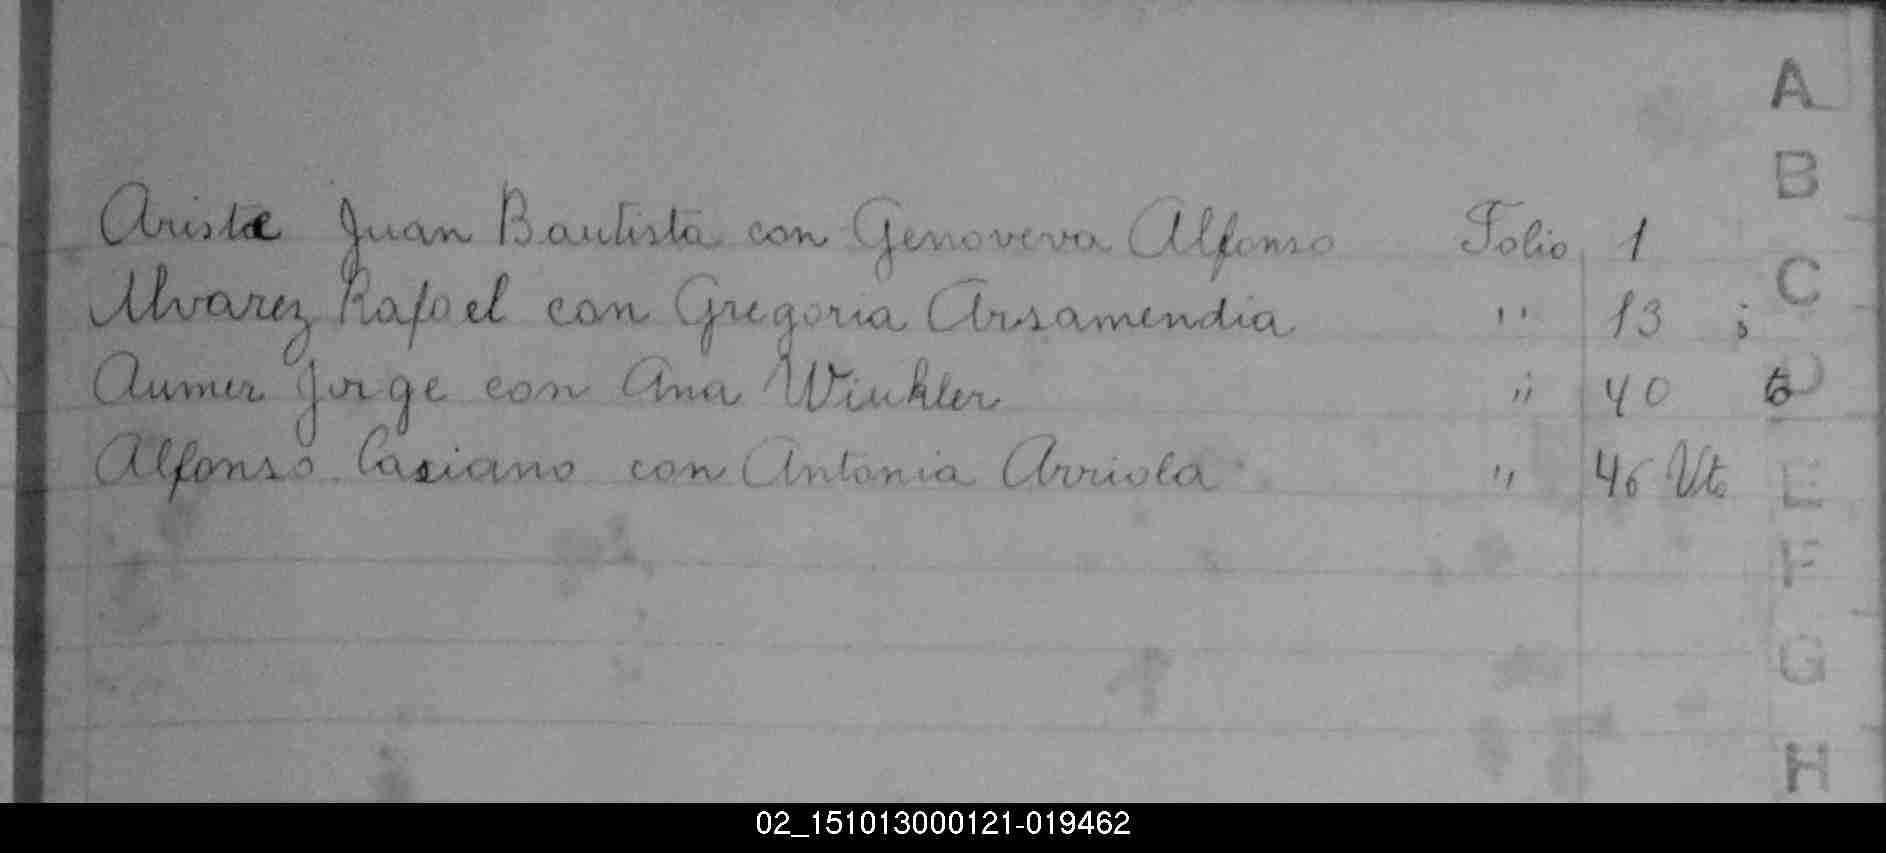 Ariste Juan Bautista con Genoveva Alfonso Folio 1
Alvarez Rafael con Gregoria Arsamendia " 13
Aumer Jorge con Ana Winkler " 40
Alfonso Casiano con Antonia Arriola " 46 Vto
A
B
C
D
E
F
G
H
02_151013000121-019462